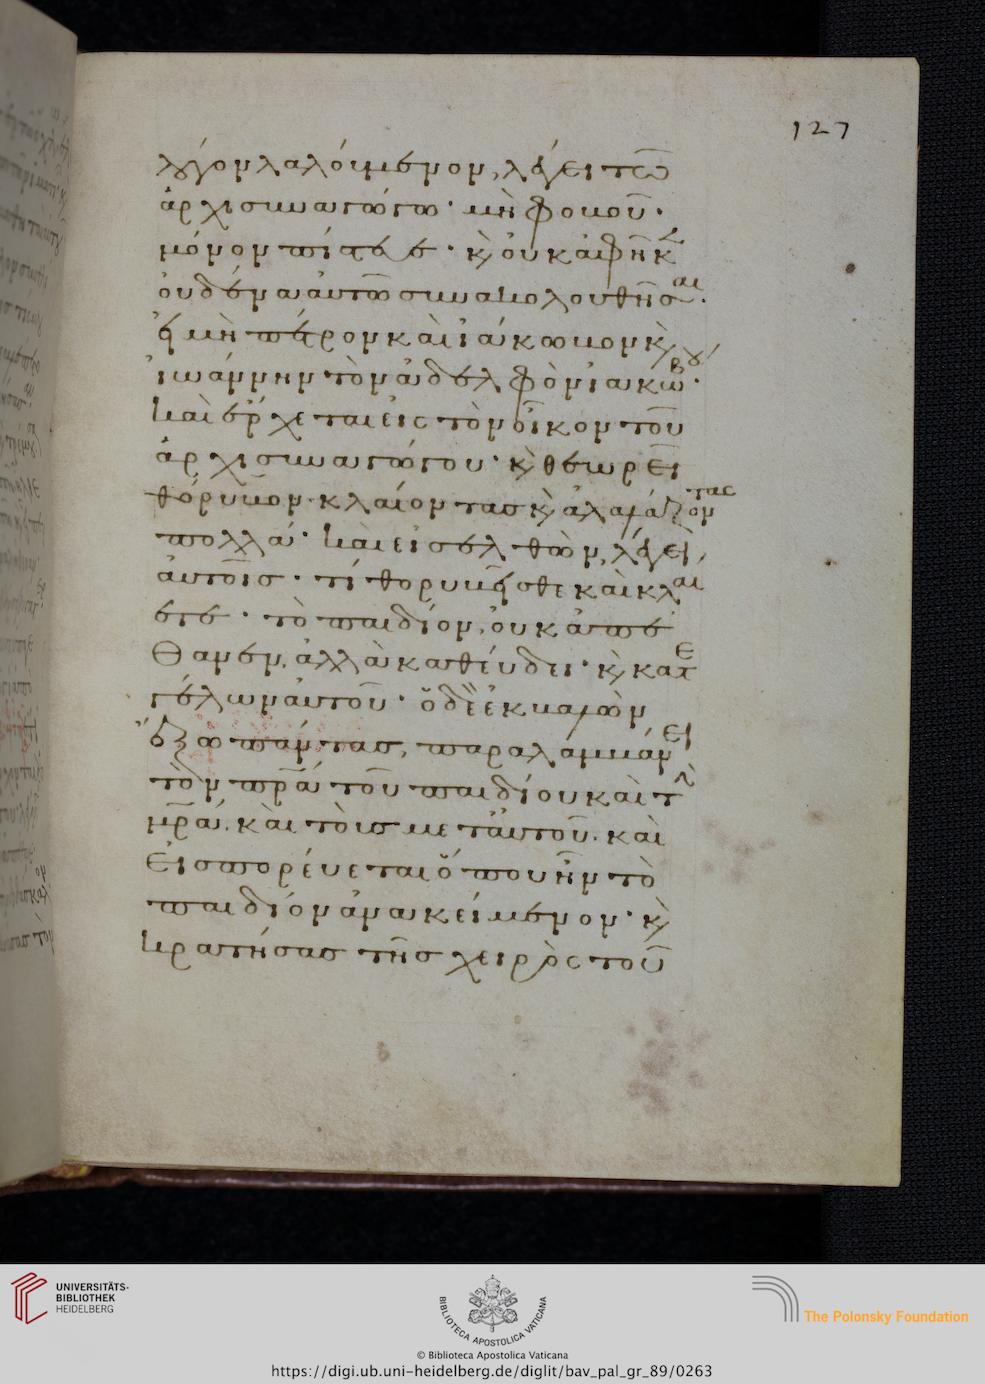 127
λόγον λαλούμενον, λέγει τῶ
ἀρχισυναγώγω· μὴ φοβοῦ·
μόνον πίστευε· κ(αὶ) οὐκ ἀφῆκ(εν)
οὐδένα αὐτῶ συνακολουθῆσαι·
εἰ μὴ πέτρον καὶ ἰάκωβον κ(αὶ)
ἰωάννην τὸν ἀδελφὸν ἰακώβου·
καὶ ἔρχεται εἰς τὸν οἶκον τοῦ
ἀρχισυναγώγου· κ(αὶ) θεωρεῖ
θόρυβον· κλαίοντας κ(αὶ) ἀλαλάζοντας
πολλά· καὶ εἰσελθὼν, λέγει
αὐτοῖς· τί θορυβεῖσθε καὶ κλαί
ετε· τὸ παιδίον, οὐκ ἀπέ
θανεν, ἀλλὰ καθεύδει· κ(αὶ) κατε
γέλων αὐτοῦ· ὁ δὲ ἐκβαλὼν
ἔξω πάντας, παραλαμβάνει
τὸν πρ̅α τοῦ παιδίου καὶ τὴν
μρ̅α. καὶ τοὺς μετ' αὐτοῦ. καὶ
εἰσπορεύεται ὅπου ἦν τὸ
παιδίον ἀνακείμενον· κ(αὶ)
κρατήσας τῆς χειρὸς τοῦ
UNIVERSITÄTS-
BIBLIOTHEK
HEIDELBERG
BIBLIOTECA APOSTOLICA VATICANA
The Polonsky Foundation
© Biblioteca Apostolica Vaticana
https://digi.ub.uni-heidelberg.de/diglit/bav_pal_gr_89/0263